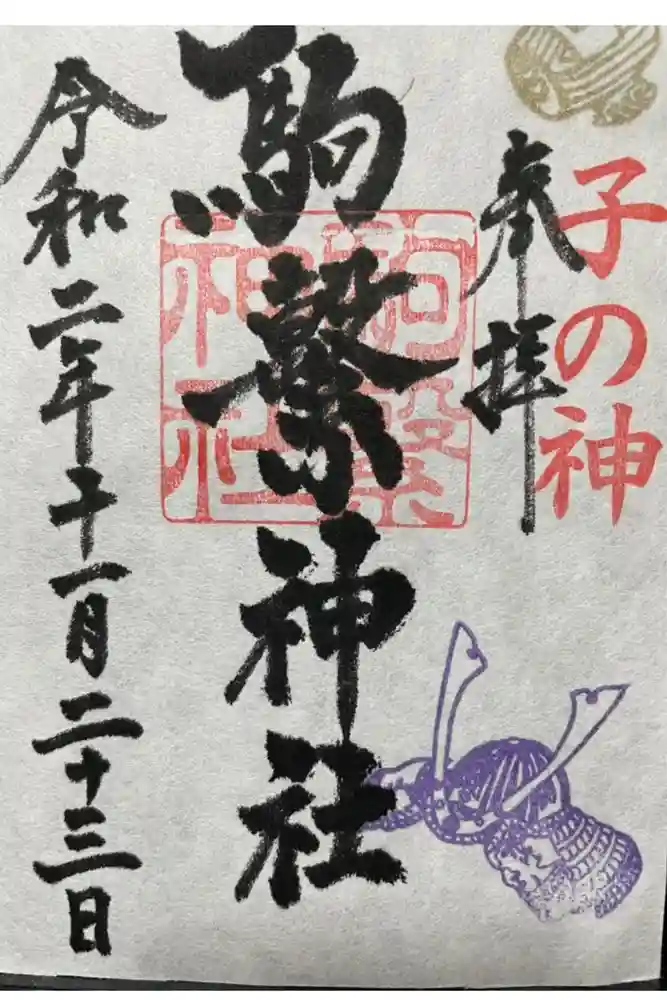 子の神
奉拝
駒繋神社
駒繋神社
令和二年十一月二十三日